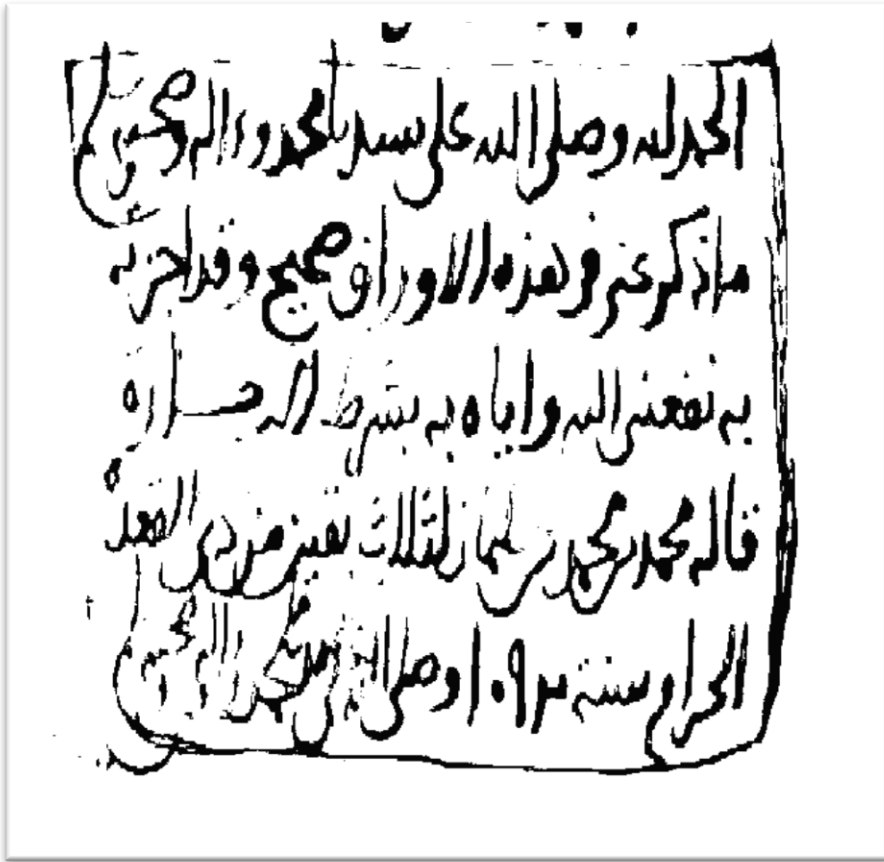 الحمد لله وصلى الله على سيدنا محمد وءاله وصحبه
ما ذكر عني في هذه الاوراق صحيح وقد اجزته
به نفعني الله واياه به بشرط
قاله محمد بن محمد بن سليمان لثلاث بقين من ذي القعدة
الحرام سنة 1093 وصلى الله على سيدنا محمد واله وصحبه